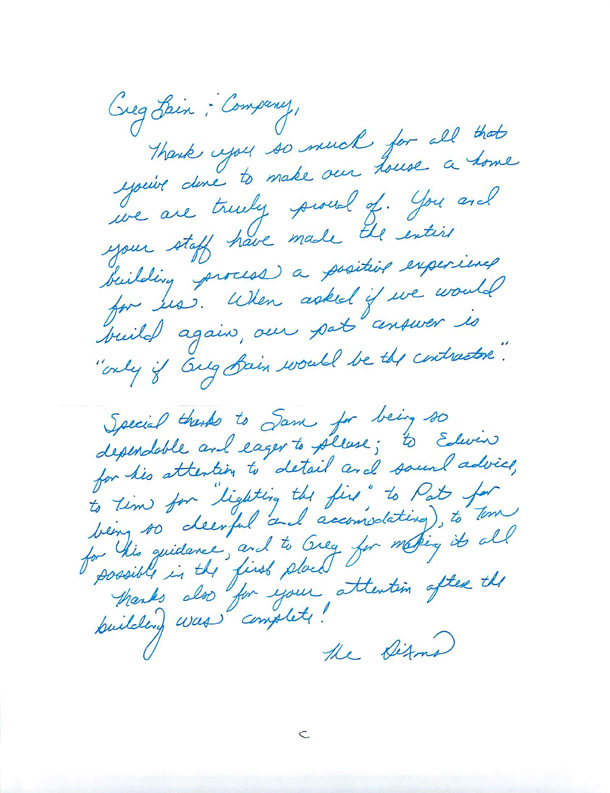 Greg Bain & Company,
Thank you so much for all that
you've done to make our house a home
we are truly proud of. You and
your staff have made the entire
building process a positive experience
for us. When asked if we would
build again, our pat answer is
"only if Greg Bain would be the contractor".
Special thanks to Sam for being so
dependable and eager to please; to Edwin
for his attention to detail and sound advice,
to Tim for "lighting the fire", to Pat for
being so cheerful and accomodating, to Tom
for his guidance, and to Greg for making it all
possible in the first place
Thanks also for your attention after the
building was complete!
The Dixons
C